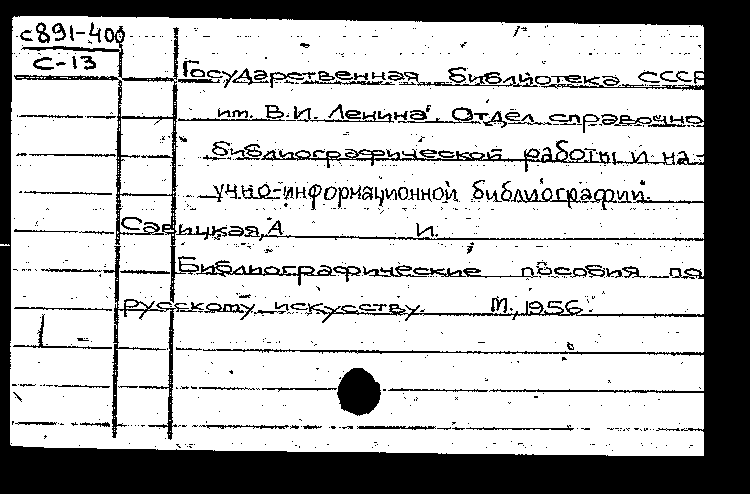 с891-400
С-13
Государственная библиотека СССР
им. В.И. Ленина. Отдел справочно
библиографической работы и на-
учно-информационной библиографии.
Савицкая, А И.
Библиографические пособия по
русскому искусству. М., 1956.